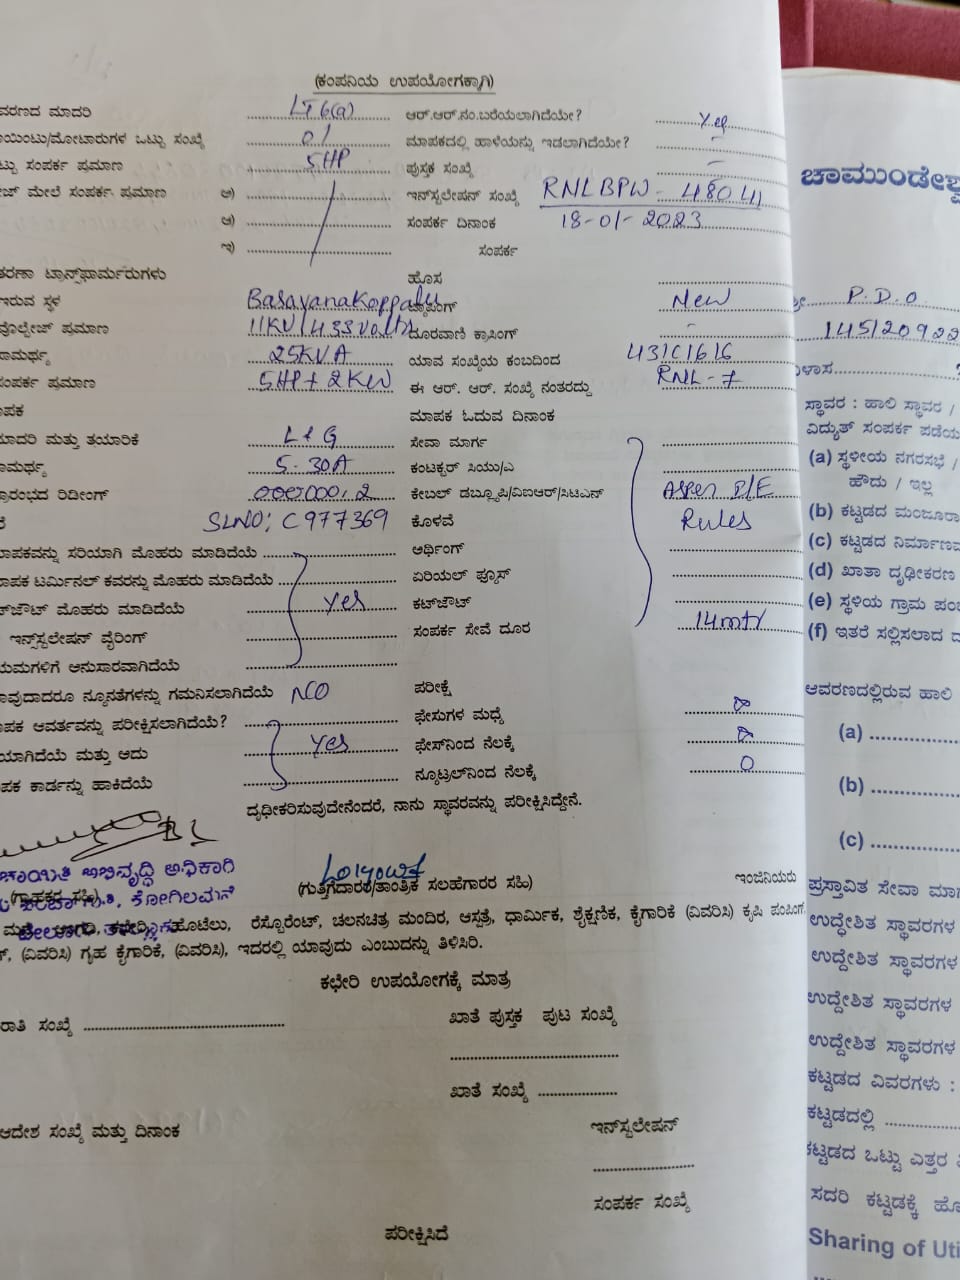 (ಕಂಪನಿಯ ಉಪಯೋಗಕ್ಕಾಗಿ)
ವರಣದ ಮಾದರಿ LT6(a) ಆರ್.ಆರ್.ನಂ.ಬರೆಯಲಾಗಿದೆಯೇ? Yes
ಯಿಂಟು/ಮೋಟಾರುಗಳ ಒಟ್ಟು ಸಂಖ್ಯೆ 01 ಮಾಪಕದಲ್ಲಿ ಹಾಳೆಯನ್ನು ಇಡಲಾಗಿದೆಯೇ? -
ಟ್ಟು ಸಂಪರ್ಕ ಪ್ರಮಾಣ 5HP ಪುಸ್ತಕ ಸಂಖ್ಯೆ -
ಜ್ ಮೇಲೆ ಸಂಪರ್ಕ ಪ್ರಮಾಣ ಅ) ಇನ್‌ಸ್ಟಲೇಷನ್ ಸಂಖ್ಯೆ RNLBPW - 48041
ಆ) ಸಂಪರ್ಕ ದಿನಾಂಕ 18-01-2023
ಇ) ಸಂಪರ್ಕ
ತರಣಾ ಟ್ರಾನ್ಸ್‌ಫಾರ್ಮರುಗಳು ಹೊಸ
ಇರುವ ಸ್ಥಳ Basavanakoppalu ಟ್ಯಾಪಿಂಗ್ New
ವೊಲ್ಟೇಜ್ ಪ್ರಮಾಣ 11KV/433Volts ದೂರವಾಣಿ ಕ್ರಾಸಿಂಗ್ -
ಸಾಮರ್ಥ್ಯ 25KVA ಯಾವ ಸಂಖ್ಯೆಯ ಕಂಬದಿಂದ 431C1616
ಸಂಪರ್ಕ ಪ್ರಮಾಣ 5HP + 2KW ಈ ಆರ್. ಆರ್. ಸಂಖ್ಯೆ ನಂತರದ್ದು RNL-7
ಪಕ ಮಾಪಕ ಓದುವ ದಿನಾಂಕ
ಮಾದರಿ ಮತ್ತು ತಯಾರಿಕೆ L&G ಸೇವಾ ಮಾರ್ಗ
ಸಾಮರ್ಥ್ಯ 5-30A ಕಂಟಕ್ಟರ್ ಸಿಯು/ಎ
ಪ್ರಾರಂಭದ ರಿಡೀಂಗ್ 000000.2 ಕೇಬಲ್ ಡಬ್ಲ್ಯೂಪಿ/ವಿಐಆರ್/ಸಿಟಿಎನ್ Asper I/E
SLNO: C977369 ಕೊಳವೆ Rules
ಮಾಪಕವನ್ನು ಸರಿಯಾಗಿ ಮೊಹರು ಮಾಡಿದೆಯೆ ಆರ್ಥಿಂಗ್
ಮಾಪಕ ಟರ್ಮಿನಲ್ ಕವರನ್ನು ಮೊಹರು ಮಾಡಿದೆಯೆ ಏರಿಯಲ್ ಫ್ಯೂಸ್
ಟ್‌ಔಟ್ ಮೊಹರು ಮಾಡಿದೆಯೆ yes ಕಟ್‌ಔಟ್
ಇನ್‌ಸ್ಟಲೇಷನ್ ವೈರಿಂಗ್ ಸಂಪರ್ಕ ಸೇವೆ ದೂರ 14mtr
ಯಮಗಳಿಗೆ ಅನುಸಾರವಾಗಿದೆಯೆ
ಾವುದಾದರೂ ನ್ಯೂನತೆಗಳನ್ನು ಗಮನಿಸಲಾಗಿದೆಯೆ NO ಪರೀಕ್ಷೆ
ಾಪಕ ಆವರ್ತವನ್ನು ಪರೀಕ್ಷಿಸಲಾಗಿದೆಯೆ? ಫೇಸುಗಳ ಮಧ್ಯೆ
ಯಾಗಿದೆಯೆ ಮತ್ತು ಅದು yes ಫೇಸ್‌ನಿಂದ ನೆಲಕ್ಕೆ
ಪಕ ಕಾರ್ಡನ್ನು ಹಾಕಿದೆಯೆ ನ್ಯೂಟ್ರಲ್‌ನಿಂದ ನೆಲಕ್ಕೆ 0
ದೃಢೀಕರಿಸುವುದೇನೆಂದರೆ, ನಾನು ಸ್ಥಾವರವನ್ನು ಪರೀಕ್ಷಿಸಿದ್ದೇನೆ.
ಚಾಯಿತಿ ಅಭಿವೃದ್ಧಿ ಅಧಿಕಾರಿ
(ಗ್ರಾಹಕರ ಸಹಿ) ಕೋಗಿಲಮನೆ (ಗುತ್ತಿಗೆದಾರರ/ತಾಂತ್ರಿಕ ಸಲಹೆಗಾರರ ಸಹಿ) ಇಂಜಿನಿಯರು
ಹೊಟೆಲು, ರೆಸ್ಟೊರೆಂಟ್, ಚಲನಚಿತ್ರ ಮಂದಿರ, ಆಸ್ಪತ್ರೆ, ಧಾರ್ಮಿಕ, ಶೈಕ್ಷಣಿಕ, ಕೈಗಾರಿಕೆ (ವಿವರಿಸಿ) ಕೃಷಿ ಪಂಪಿಂಗ
್, (ವಿವರಿಸಿ) ಗೃಹ ಕೈಗಾರಿಕೆ, (ವಿವರಿಸಿ), ಇದರಲ್ಲಿ ಯಾವುದು ಎಂಬುದನ್ನು ತಿಳಿಸಿರಿ.
ಕಛೇರಿ ಉಪಯೋಗಕ್ಕೆ ಮಾತ್ರ
ರಾತಿ ಸಂಖ್ಯೆ ಖಾತೆ ಪುಸ್ತಕ ಪುಟ ಸಂಖ್ಯೆ
ಖಾತೆ ಸಂಖ್ಯೆ
ಆದೇಶ ಸಂಖ್ಯೆ ಮತ್ತು ದಿನಾಂಕ ಇನ್‌ಸ್ಟಲೇಷನ್
ಸಂಪರ್ಕ ಸಂಖ್ಯೆ
ಪರೀಕ್ಷಿಸಿದೆ
ಚಾಮುಂಡೇಶ್ವ
P.D.O
145120922
ಸ್ಥಾವರ : ಹಾಲಿ ಸ್ಥಾವರ /
ವಿದ್ಯುತ್ ಸಂಪರ್ಕ ಪಡೆಯ
(a) ಸ್ಥಳೀಯ ನಗರಸಭೆ /
ಹೌದು / ಇಲ್ಲ
(b) ಕಟ್ಟಡದ ಮಂಜೂರಾ
(c) ಕಟ್ಟಡದ ನಿರ್ಮಾಣ
(d) ಖಾತಾ ದೃಢೀಕರಣ
(e) ಸ್ಥಳಿಯ ಗ್ರಾಮ ಪಂ
(f) ಇತರೆ ಸಲ್ಲಿಸಲಾದ ದ
ಆವರಣದಲ್ಲಿರುವ ಹಾಲಿ
(a)
(b)
(c)
ಪ್ರಸ್ತಾವಿತ ಸೇವಾ ಮಾ
ಉದ್ದೇಶಿತ ಸ್ಥಾವರಗಳ
ಉದ್ದೇಶಿತ ಸ್ಥಾವರಗಳ
ಉದ್ದೇಶಿತ ಸ್ಥಾವರಗಳ
ಉದ್ದೇಶಿತ ಸ್ಥಾವರಗಳ
ಕಟ್ಟಡದ ವಿವರಗಳು :
ಕಟ್ಟಡದಲ್ಲಿ
ಕಟ್ಟಡದ ಒಟ್ಟು ಎತ್ತರ
ಸದರಿ ಕಟ್ಟಡಕ್ಕೆ ಹೊ
Sharing of Uti